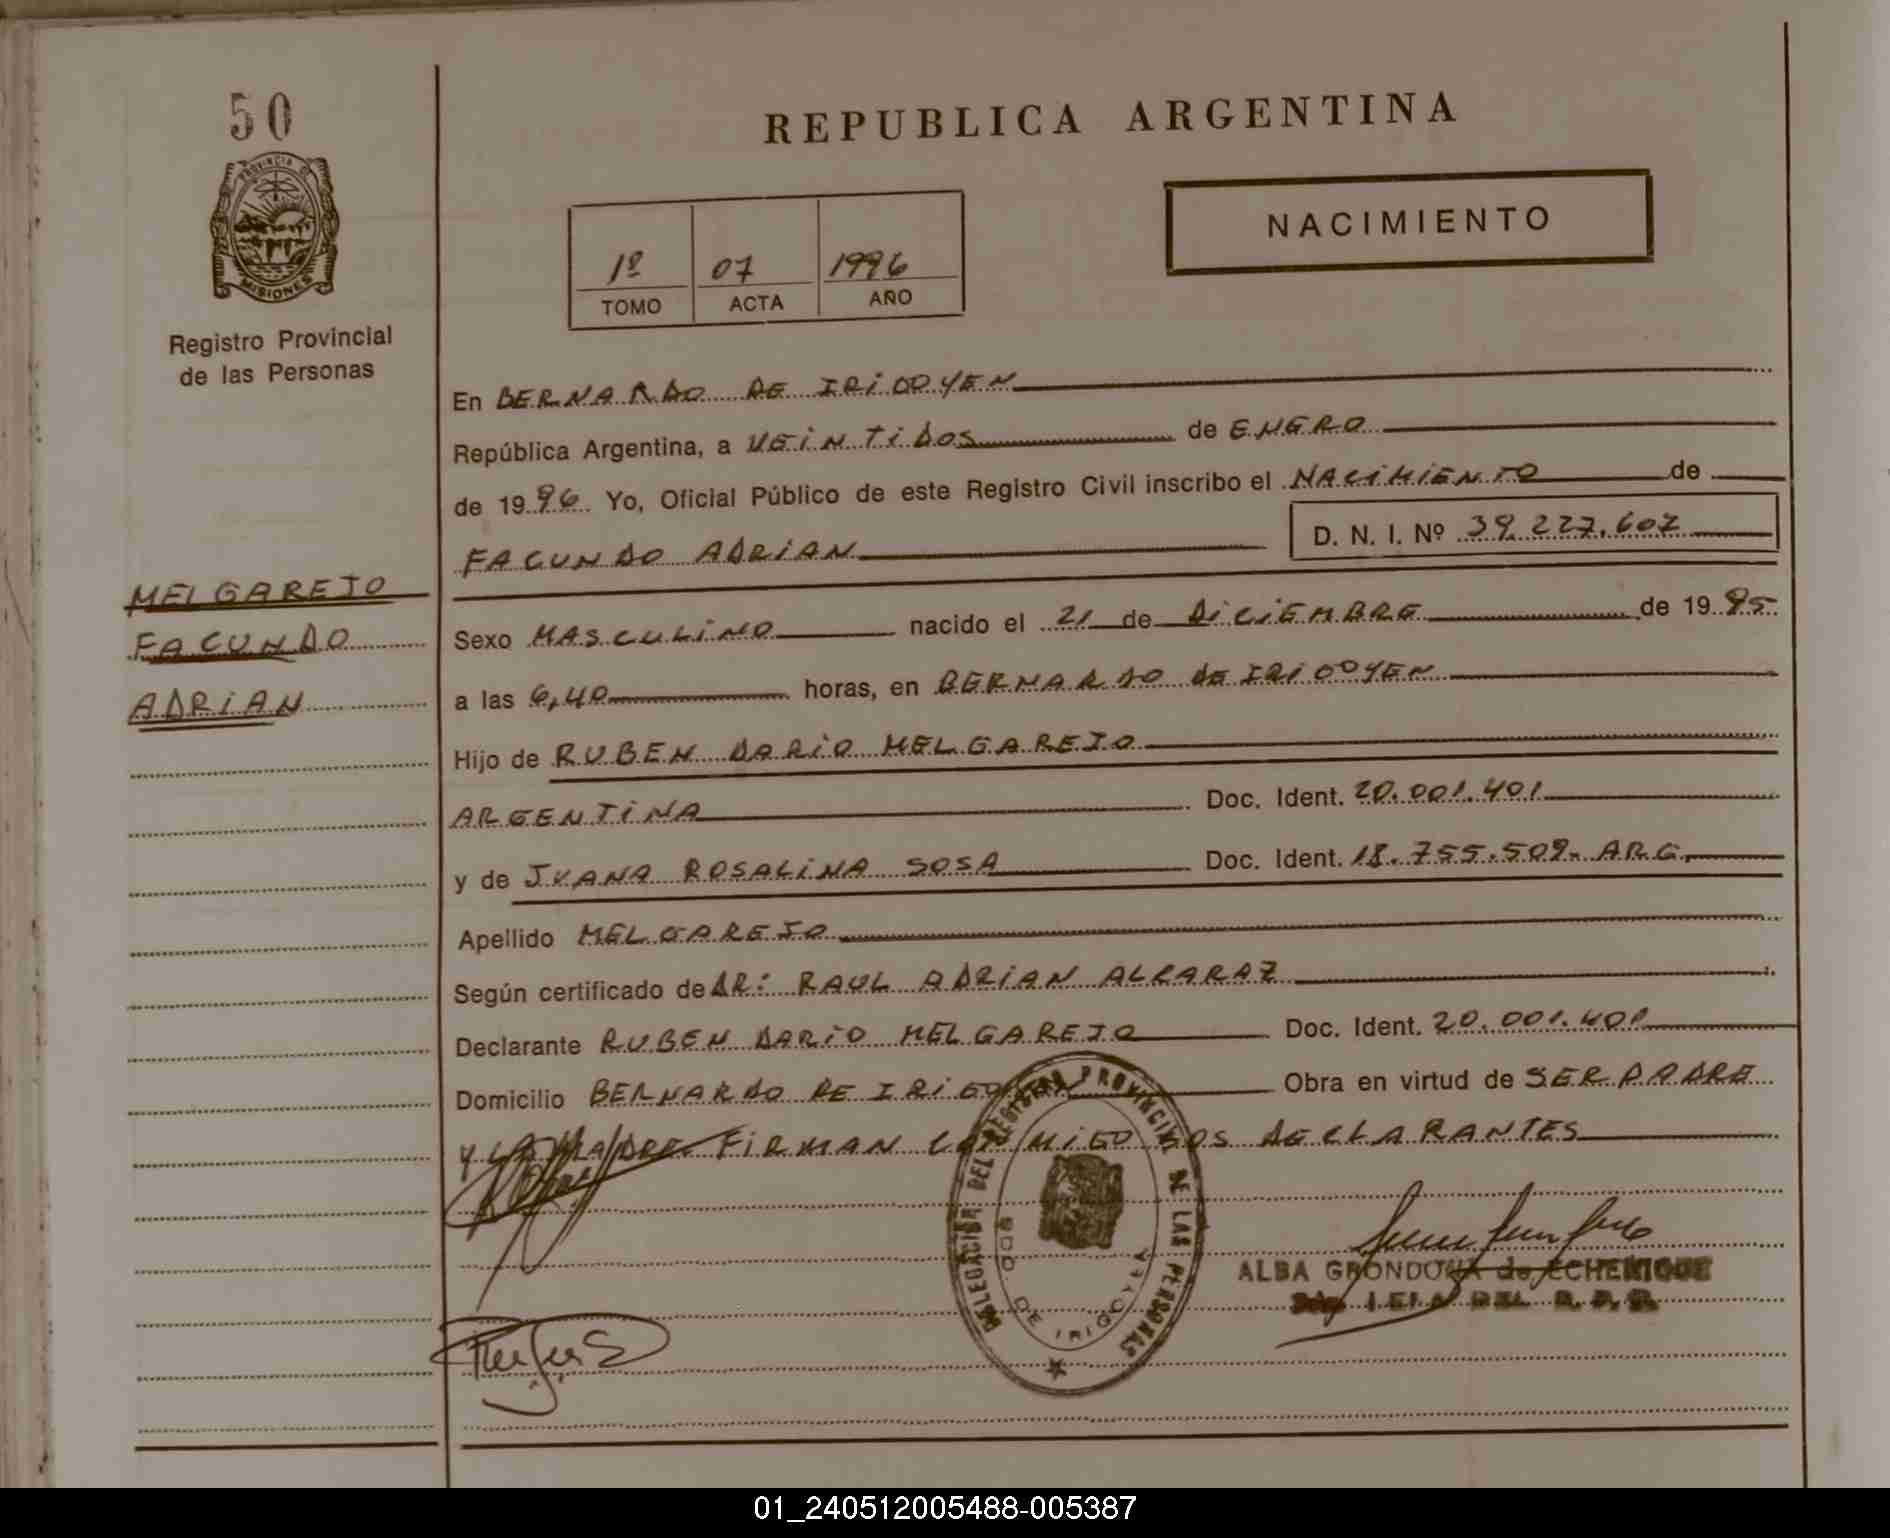 50
REPUBLICA ARGENTINA
PROVINCIA DE
MISIONES
NACIMIENTO
1º 07 1996
TOMO ACTA AÑO
Registro Provincial
de las Personas
En BERNARDO DE IRIGOYEN
República Argentina, a VEINTIDOS de ENERO
de 1996 Yo, Oficial Público de este Registro Civil inscribo el NACIMIENTO de
FACUNDO ADRIAN D. N. I. Nº 39.227.607
MELGAREJO
FACUNDO
ADRIAN
Sexo MASCULINO nacido el 21 de DICIEMBRE de 1995
a las 6,40 horas, en BERNARDO DE IRIGOYEN
Hijo de RUBEN DARIO MELGAREJO
ARGENTINA Doc. Ident. 20.001.401
y de JUANA ROSALINA SOSA Doc. Ident. 18.755.509- ARG.
Apellido MELGAREJO
Según certificado de DR: RAUL ADRIAN ALCARAZ
Declarante RUBEN DARIO MELGAREJO Doc. Ident. 20.001.401
Domicilio BERNARDO DE IRIGOYEN Obra en virtud de SER PADRE
Y LA MADRE FIRMAN CONMIGO LOS DECLARANTES
DELEGACIÓN DEL REGISTRO PROVINCIAL DE LAS PERSONAS
BDO. DE IRIGOYEN
ALBA GRONDONA de ECHENIQUE
DEL R. P. P.
01_240512005488-005387